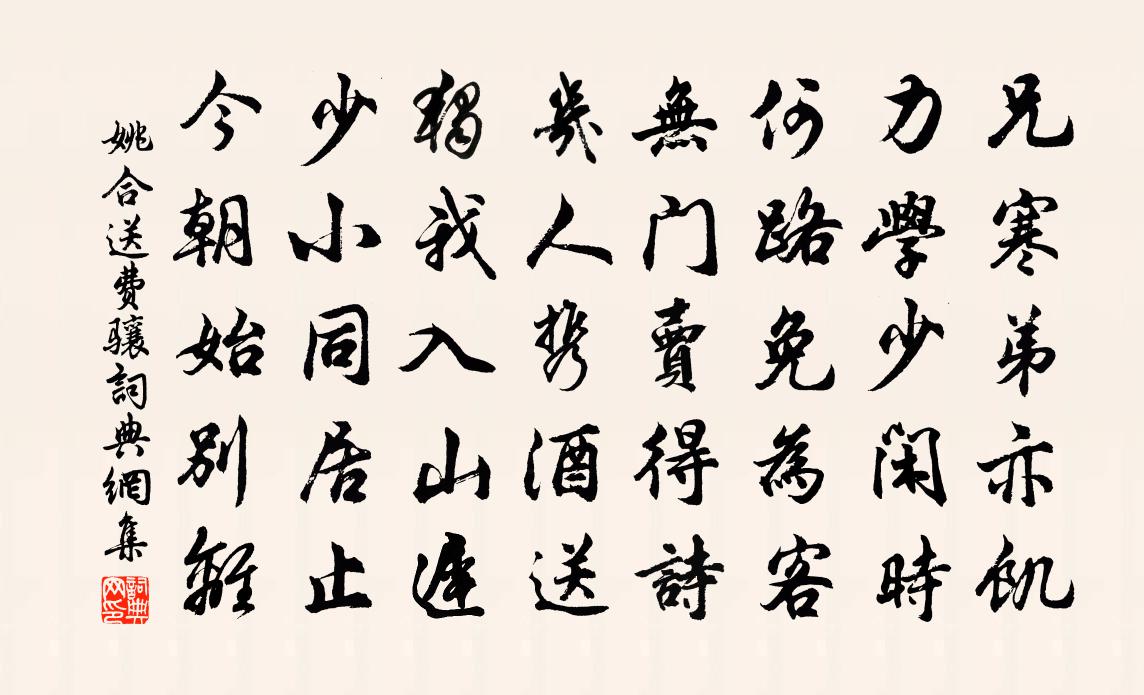 兄寒弟亦飢
力學少閑時
何路免為客
無門賣得詩
幾人携酒送
獨我入山遲
少小同居止
今朝始別離
姚合送費驤詞典網集
詞典